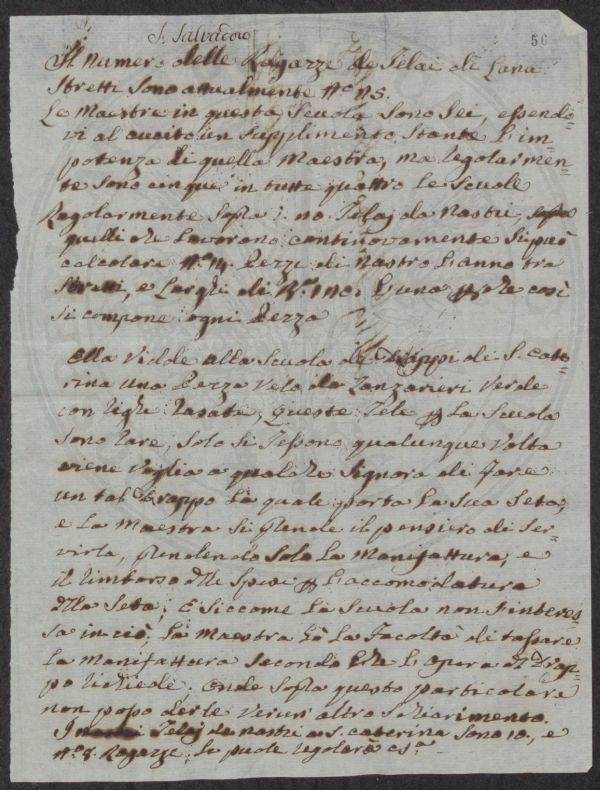 S. Salvadore
56
Il Numero delle Ragazze de Telai di Lana
Stretti sono attualmente N.º 115.
Le Maestre in questa Scuola sono Sei, essendo=
vi al un Supplimento, stante l'im=
potenza di quella Maestra, ma regolarmen=
te sono cinque in tutte quattro le Scuole
Regolarmente sopra i no. Telaj da Nastri,
quelli che lavorano continovamente si può
calcolare N.º Pezze di Nastro l'anno tra
Stretti, e Larghi di l'una che così
si compone ogni Pezza
Ella Vidde alla Scuola de Drappi di S. Cate=
rina una Pezza Velo da Zanzarieri Verde
con righe Rasate, queste Tele La Scuola
sono rare, solo si Tessono qualunque Volta
viene Voglia a qualche Signora di fare
un tal Drappo la quale porta la sua Seta,
e la Maestra si prende il pensiero di Ser=
virla, prendendo sola la Manifattura, e
il rimborso delle spese l'accomodatura
della Seta, E siccome la Scuola non s'interes=
sa in ciò, la Maestra hà la facoltà di tassare
la Manifattura secondo che l'opera del Drap=
po richiede. Onde sopra questo particolare
non posso derle verun' altro schiarimento.
I Telaj da nastri a S. Caterina sono 10, e
N.º 8. Ragazze,